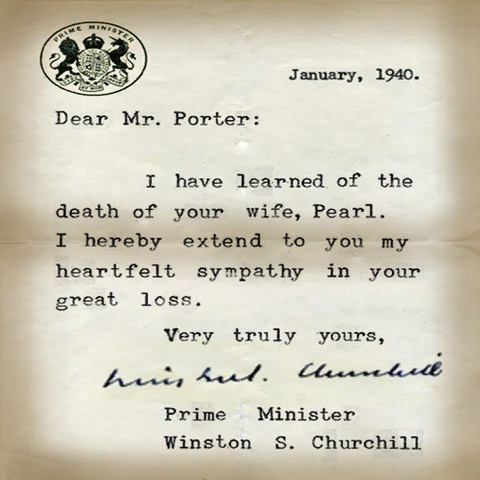 PRIME MINISTER
January, 1940.
Dear Mr. Porter:
I have learned of the
death of your wife, Pearl.
I hereby extend to you my
heartfelt sympathy in your
great loss.
Very truly yours,
Winston S. Churchill
Prime Minister
Winston S. Churchill